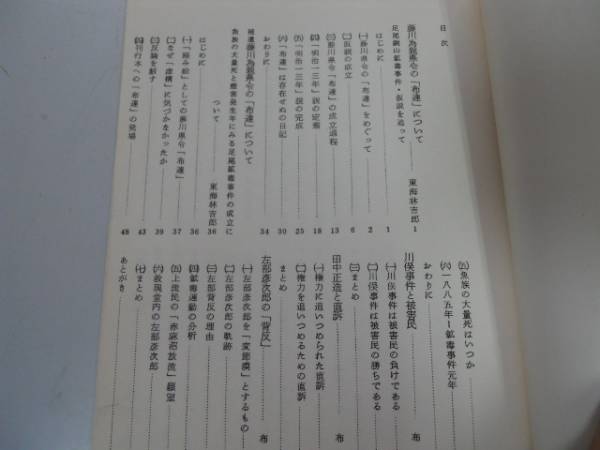 目次
藤川為親県令の「布達」について 東海林吉郎 1
足尾銅山鉱毒事件・仮説を追って
はじめに 1
㈠ 藤川県令の「布達」をめぐって 2
㈡ 仮説の成立 6
㈢ 藤川県令「布達」の成立過程 13
㈣ 「明治一三年」説の定着 18
㈤ 「明治一三年」説の完成 25
㈥ 「布達」は存在せぬの日記 30
おわりに 34
補遺 藤川為親県令の「布達」について
魚族の大量死と被害発生年にみる足尾鉱毒事件の成立に
ついて 東海林吉郎 36
はじめに 36
㈠ 「踏み絵」としての藤川県令「布達」 37
㈡ なぜ「虚構」に気づかなかったか 39
㈢ 反論を駁す 43
㈣ 刊行本への「布達」の登場 48
㈤ 魚族の大量死はいつか
㈥ 一八八五年―鉱毒事件元年
おわりに
川俣事件と被害民 布
㈠ 川俣事件は被害民の負けである
㈡ 川俣事件は被害民の勝ちである
㈢ まとめ
田中正造と直訴 布
㈠ 権力に追いつめられた直訴
㈡ 権力を追いつめるための直訴
まとめ
左部彦次郎の「背反」 布
㈠ 左部彦次郎を「変節漢」とするもの
㈡ 左部彦次郎の軌跡
㈢ 左部背反の理由
㈣ 鉱毒運動の分析
㈤ 上流民の「赤麻沼放流」願望
㈥ 救現堂内の左部彦次郎
㈦ まとめ
あとがき